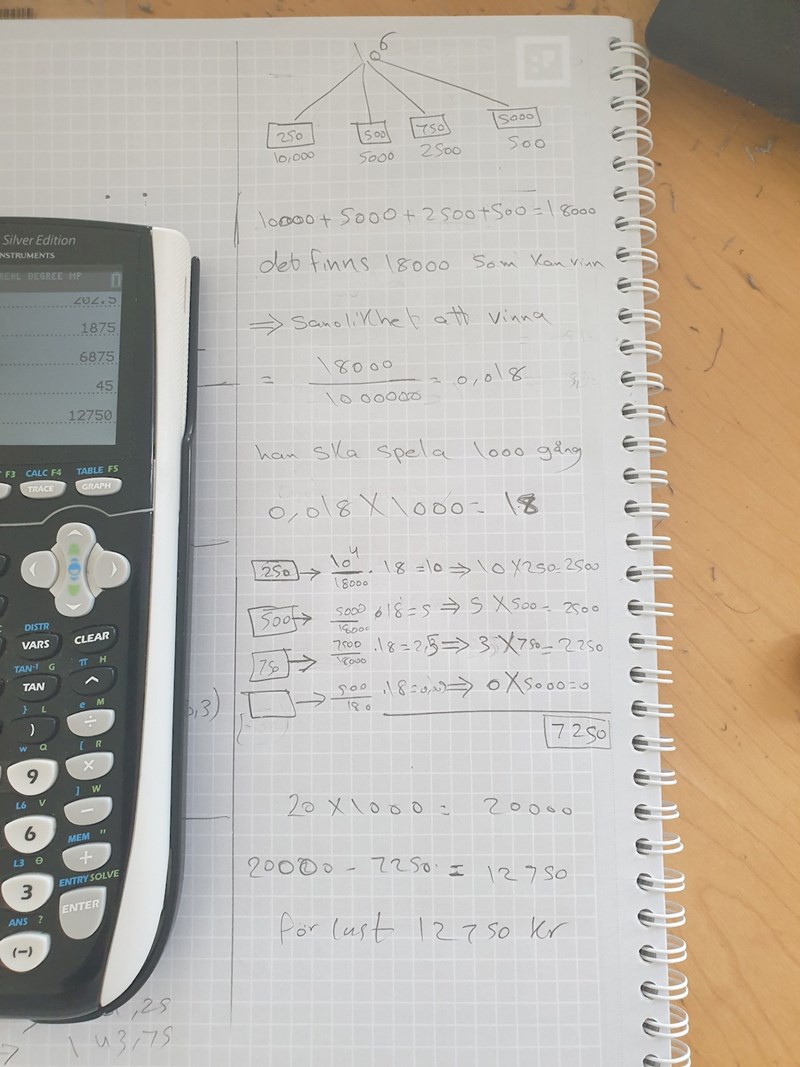 10⁶
250 500 750 5000
10,000 5000 2500 500
10000 + 5000 + 2500 + 500 = 18000
det finns 18000 som kan vinn
⇒ sanolikhet att vinna
= 18000/1000000 = 0,018
han ska spela 1000 gång
0,018 × 1000 = 18
250 → 10⁴/18000 · 18 = 10 ⇒ 10 × 250 = 2500
500 → 5000/18000 · 18 = 5 ⇒ 5 × 500 = 2500
750 → 2500/18000 · 18 = 2,5 ⇒ 3 × 750 = 2250
→ 500/180 · 18 = ⇒ 0 × 5000 = 0
7250
20 × 1000 = 20000
20000 - 7250 = 12750
för lust 12750 kr
Silver Edition
INSTRUMENTS
REAL DEGREE MP
202.5
1875
6875
45
12750
F3 CALC F4 TABLE F5
TRACE GRAPH
DISTR
VARS CLEAR
TAN⁻¹ G π H
TAN ^
} L e M
) ÷
w Q [ R
9 ×
L6 V ] W
6 −
L3 θ MEM "
3 +
ANS ? ENTRY SOLVE
(−) ENTER
,3)
,25
143,75